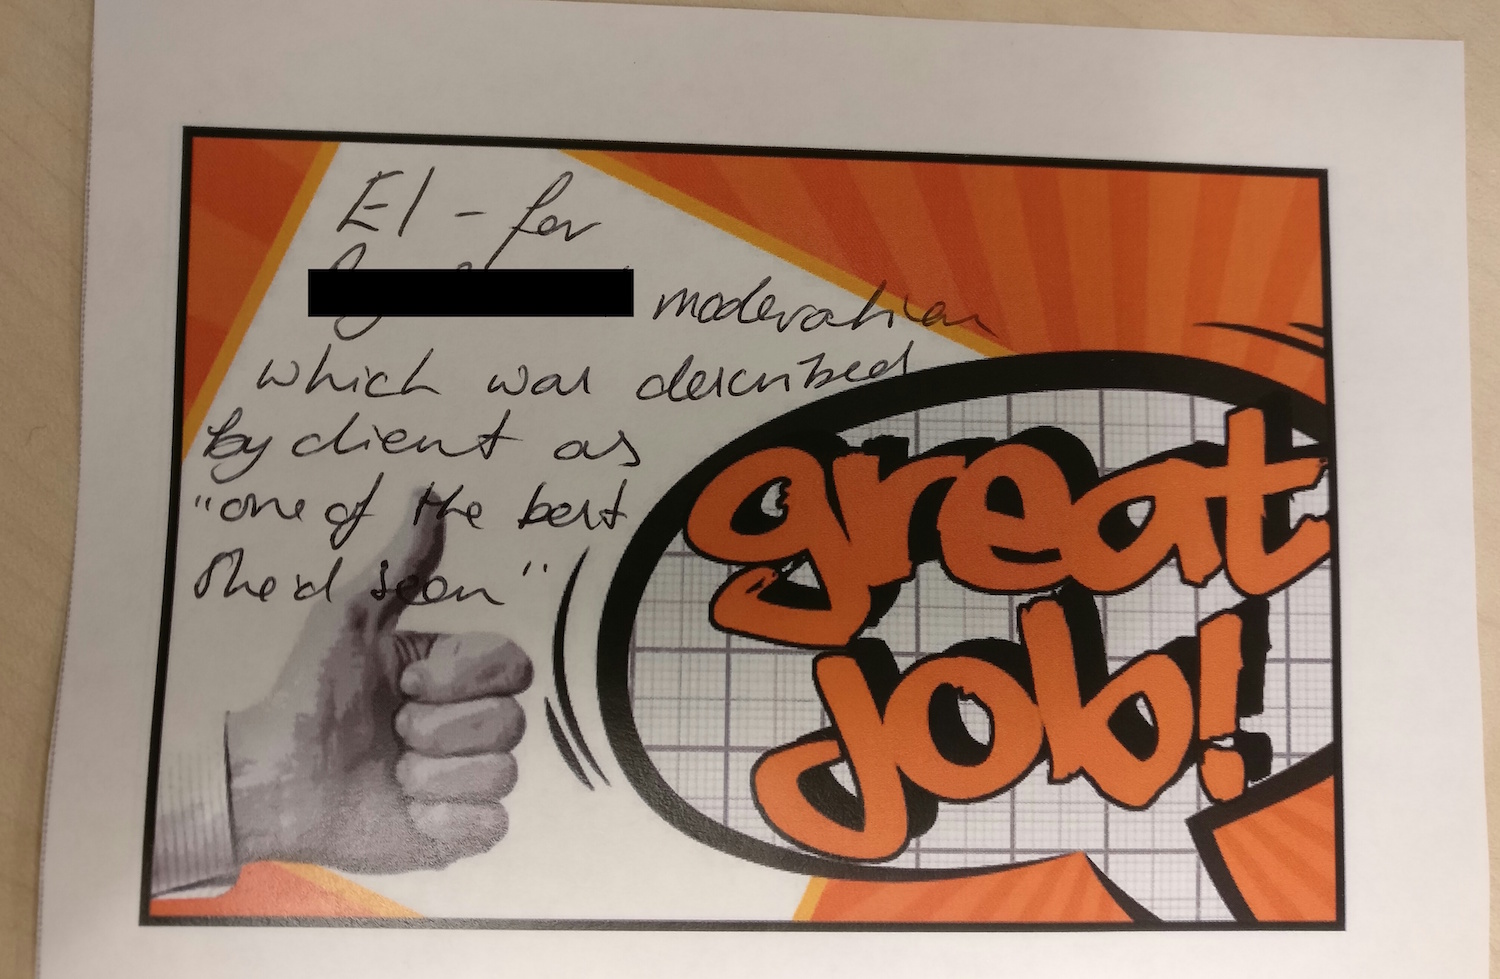 El - for
moderation
which was described
by client as
"one of the best
she'd seen"
great
job!